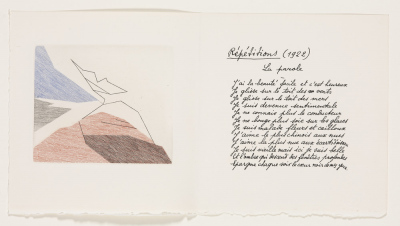 Répétitions (1922)
La parole
J'ai la beauté facile et c'est heureux
Je glisse sur le toit des vents
Je glisse sur le toit des mers
Je suis devenue sentimentale
Je ne connais plus le conducteur
Je ne bouge plus soie sur les glaces
Je suis malade fleurs et cailloux
J'aime le plus chinois aux nues
J'aime la plus nue aux
Je suis vieille mais ici je suis belle
Et l'ombre qui descend des fenêtres profondes
Épargne chaque soir le cœur noir de mes yeux